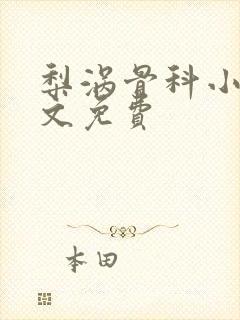 梨涡骨科小
文免費
本田